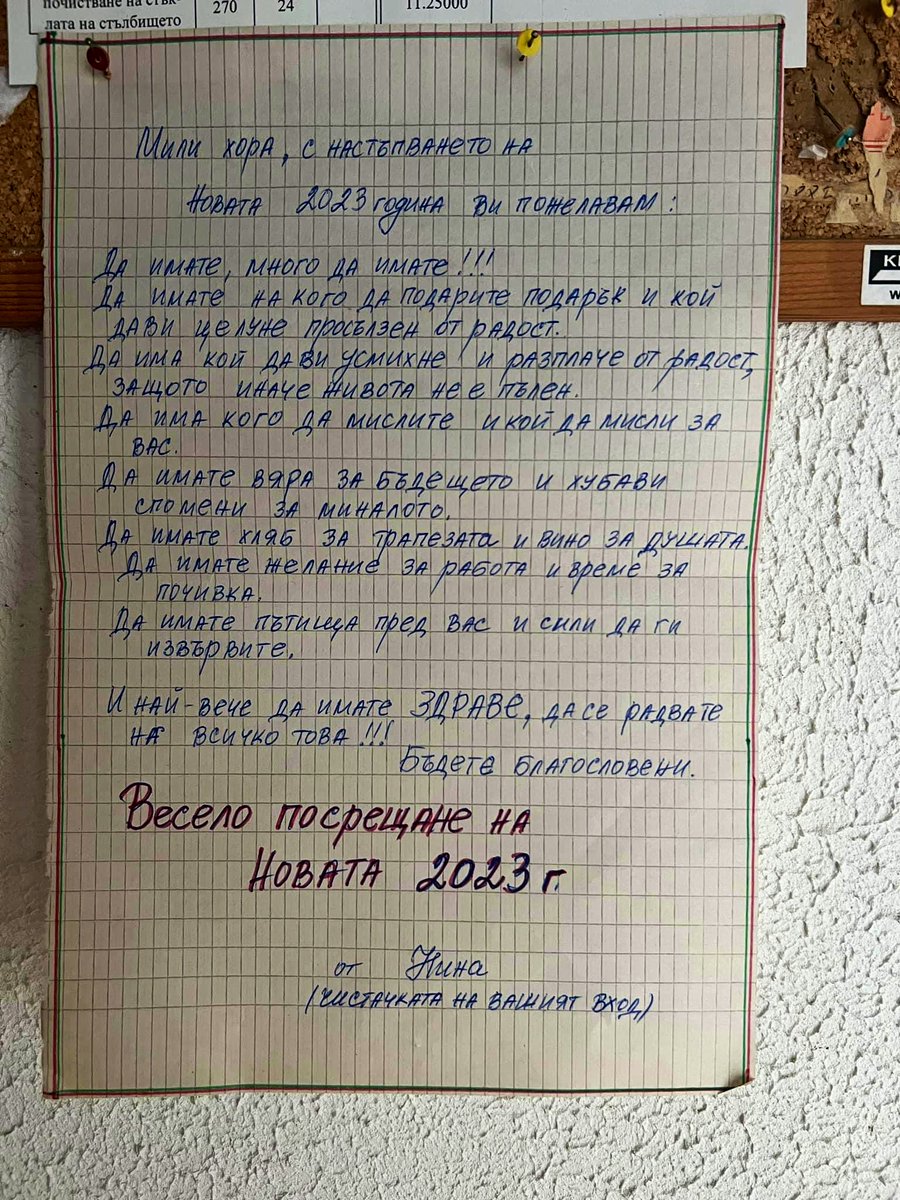 почистване на стък-
лата на стълбището
270
24
11.25000
Мили хора, с настъпването на
Новата 2023 година ви пожелавам:
Да имате, много да имате!!!
Да имате на кого да подарите подарък и кой
дави целуне просълзен от радост.
Да има кой дави усмихне и разплаче от радост,
защото иначе живота не е пълен.
Да има кого да мислите и кой да мисли за
вас.
Да имате вяра за бъдещето и хубави
спомени за миналото.
Да имате хляб за трапезата и вино за душата.
Да имате желание за работа и време за
почивка.
Да имате пътища пред вас и сили да ги
извървите.
И най-вече да имате ЗДРАВЕ, да се радвате
на всичко това!!!
Бъдете благословени.
Весело посрещане на
Новата 2023 г.
от Нина
(чистачката на вашият вход)